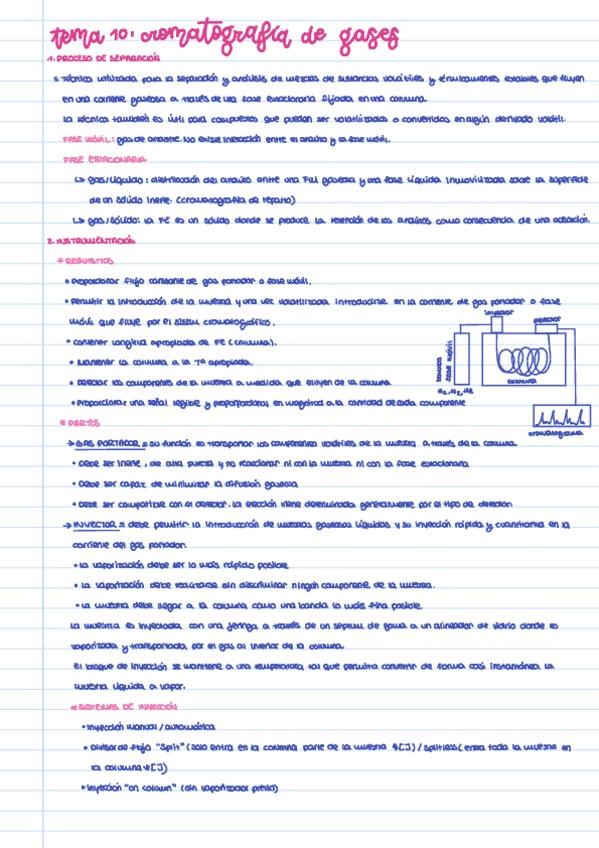 tema 10: cromatografía de gases
1. PROCESO DE SEPARACIÓN
= Técnica utilizada para la separación y análisis de mezclas de sustancias volátiles y térmicamente estables que fluyen
en una corriente gaseosa a través de una fase estacionaria fijada en una columna.
La técnica también es útil para compuestos que puedan ser volatilizados o convertidos en algún derivado volátil.
FASE MÓVIL: gas de arrastre. No existe interacción entre el analito y la fase móvil.
FASE ESTACIONARIA
↳ Gas/líquido: distribución del analito entre una FM gaseosa y una fase líquida inmovilizada sobre la superficie
de un sólido inerte. (cromatografía de reparto)
↳ Gas/sólido: la FE es un sólido donde se produce la retención de los analitos como consecuencia de una adsorción.
2. INSTRUMENTACIÓN
* REQUISITOS
• Proporcionar flujo constante de gas portador o fase móvil.
• Permitir la introducción de la muestra y una vez volatilizada introducirse en la corriente de gas portador o fase
móvil que fluye por el sistema cromatográfico.
• Contener longitud apropiada de FE (columna).
• Mantener la columna a la Tª apropiada.
• Detectar los componentes de la muestra a medida que eluyen de la columna
• Proporcionar una señal legible y proporcional en magnitud a la cantidad de cada componente
inyector
detector
bomba fase móvil
columna
H2, N2, He
cromatograma
* PARTES
→ GAS PORTADOR = su función es transportar los componentes volátiles de la muestra a través de la columna.
• Debe ser inerte, de alta pureza y no reaccionar ni con la muestra ni con la fase estacionaria
• Debe ser capaz de minimizar la difusión gaseosa
• Debe ser compatible con el detector. La elección viene determinada generalmente por el tipo de detector
→ INYECTOR = debe permitir la introducción de muestras gaseosas líquidas y su inyección rápida y cuantitativa en la
corriente del gas portador.
• La vaporización debe ser lo más rápido posible
• La vaporización debe realizarse sin discriminar ningún componente de la muestra.
• La muestra debe llegar a la columna como una banda lo más fina posible.
La muestra es inyectada, con una jeringa a través de un septum de goma a un alineador de vidrio donde es
vaporizada y transportada, por el gas al interior de la columna.
El bloque de inyección se mantiene a una temperatura, tal que permita convertir de forma casi instantánea la
muestra líquida a vapor.
* SISTEMAS DE INYECCIÓN
• Inyección manual / automática
• Divisor de flujo "split" (solo entra en la columna parte de la muestra ↑[ ]) / splitless (entra toda la muestra en
la columna ↓[ ])
• Inyección "on column" (sin vaporizador previo)